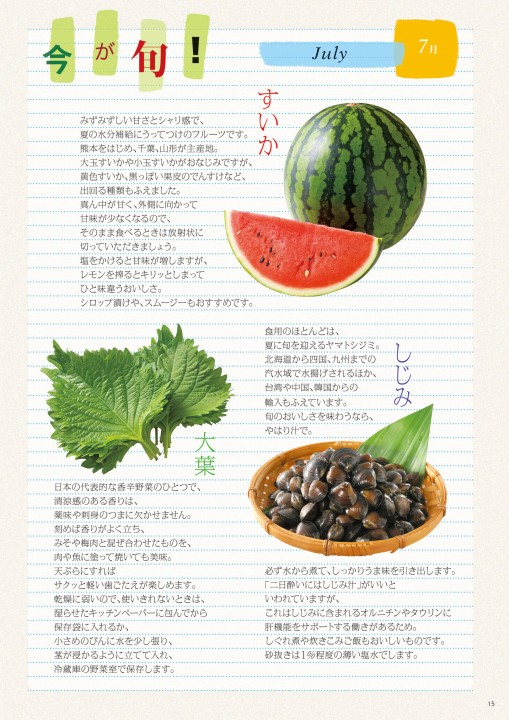 今が旬!
July
7月
すいか
みずみずしい甘さとシャリ感で、
夏の水分補給にうってつけのフルーツです。
熊本をはじめ、千葉、山形が主産地。
大玉すいかや小玉すいかがおなじみですが、
黄色すいか、黒っぽい果皮のでんすけなど、
出回る種類もふえました。
真ん中が甘く、外側に向かって
甘味が少なくなるので、
そのまま食べるときは放射状に
切っていただきましょう。
塩をかけると甘味が増しますが、
レモンを搾るとキリッとしまって
ひと味違うおいしさ。
シロップ漬けや、スムージーもおすすめです。
しじみ
食用のほとんどは、
夏に旬を迎えるヤマトシジミ。
北海道から四国、九州までの
汽水域で水揚げされるほか、
台湾や中国、韓国からの
輸入もふえています。
旬のおいしさを味わうなら、
やはり汁で。
必ず水から煮て、しっかりうま味を引き出します。
「二日酔いにはしじみ汁」がいいと
いわれていますが、
これはしじみに含まれるオルニチンやタウリンに
肝機能をサポートする働きがあるため。
しぐれ煮や炊きこみご飯もおいしいものです。
砂抜きは1%程度の薄い塩水でします。
大葉
日本の代表的な香辛野菜のひとつで、
清涼感のある香りは、
薬味や刺身のつまに欠かせません。
刻めば香りがよく立ち、
みそや梅肉と混ぜ合わせたものを、
肉や魚に塗って焼いても美味。
天ぷらにすれば
サクッと軽い歯ごたえが楽しめます。
乾燥に弱いので、使いきれないときは、
湿らせたキッチンペーパーに包んでから
保存袋に入れるか、
小さめのびんに水を少し張り、
茎が浸かるように立てて入れ、
冷蔵庫の野菜室で保存します。
15